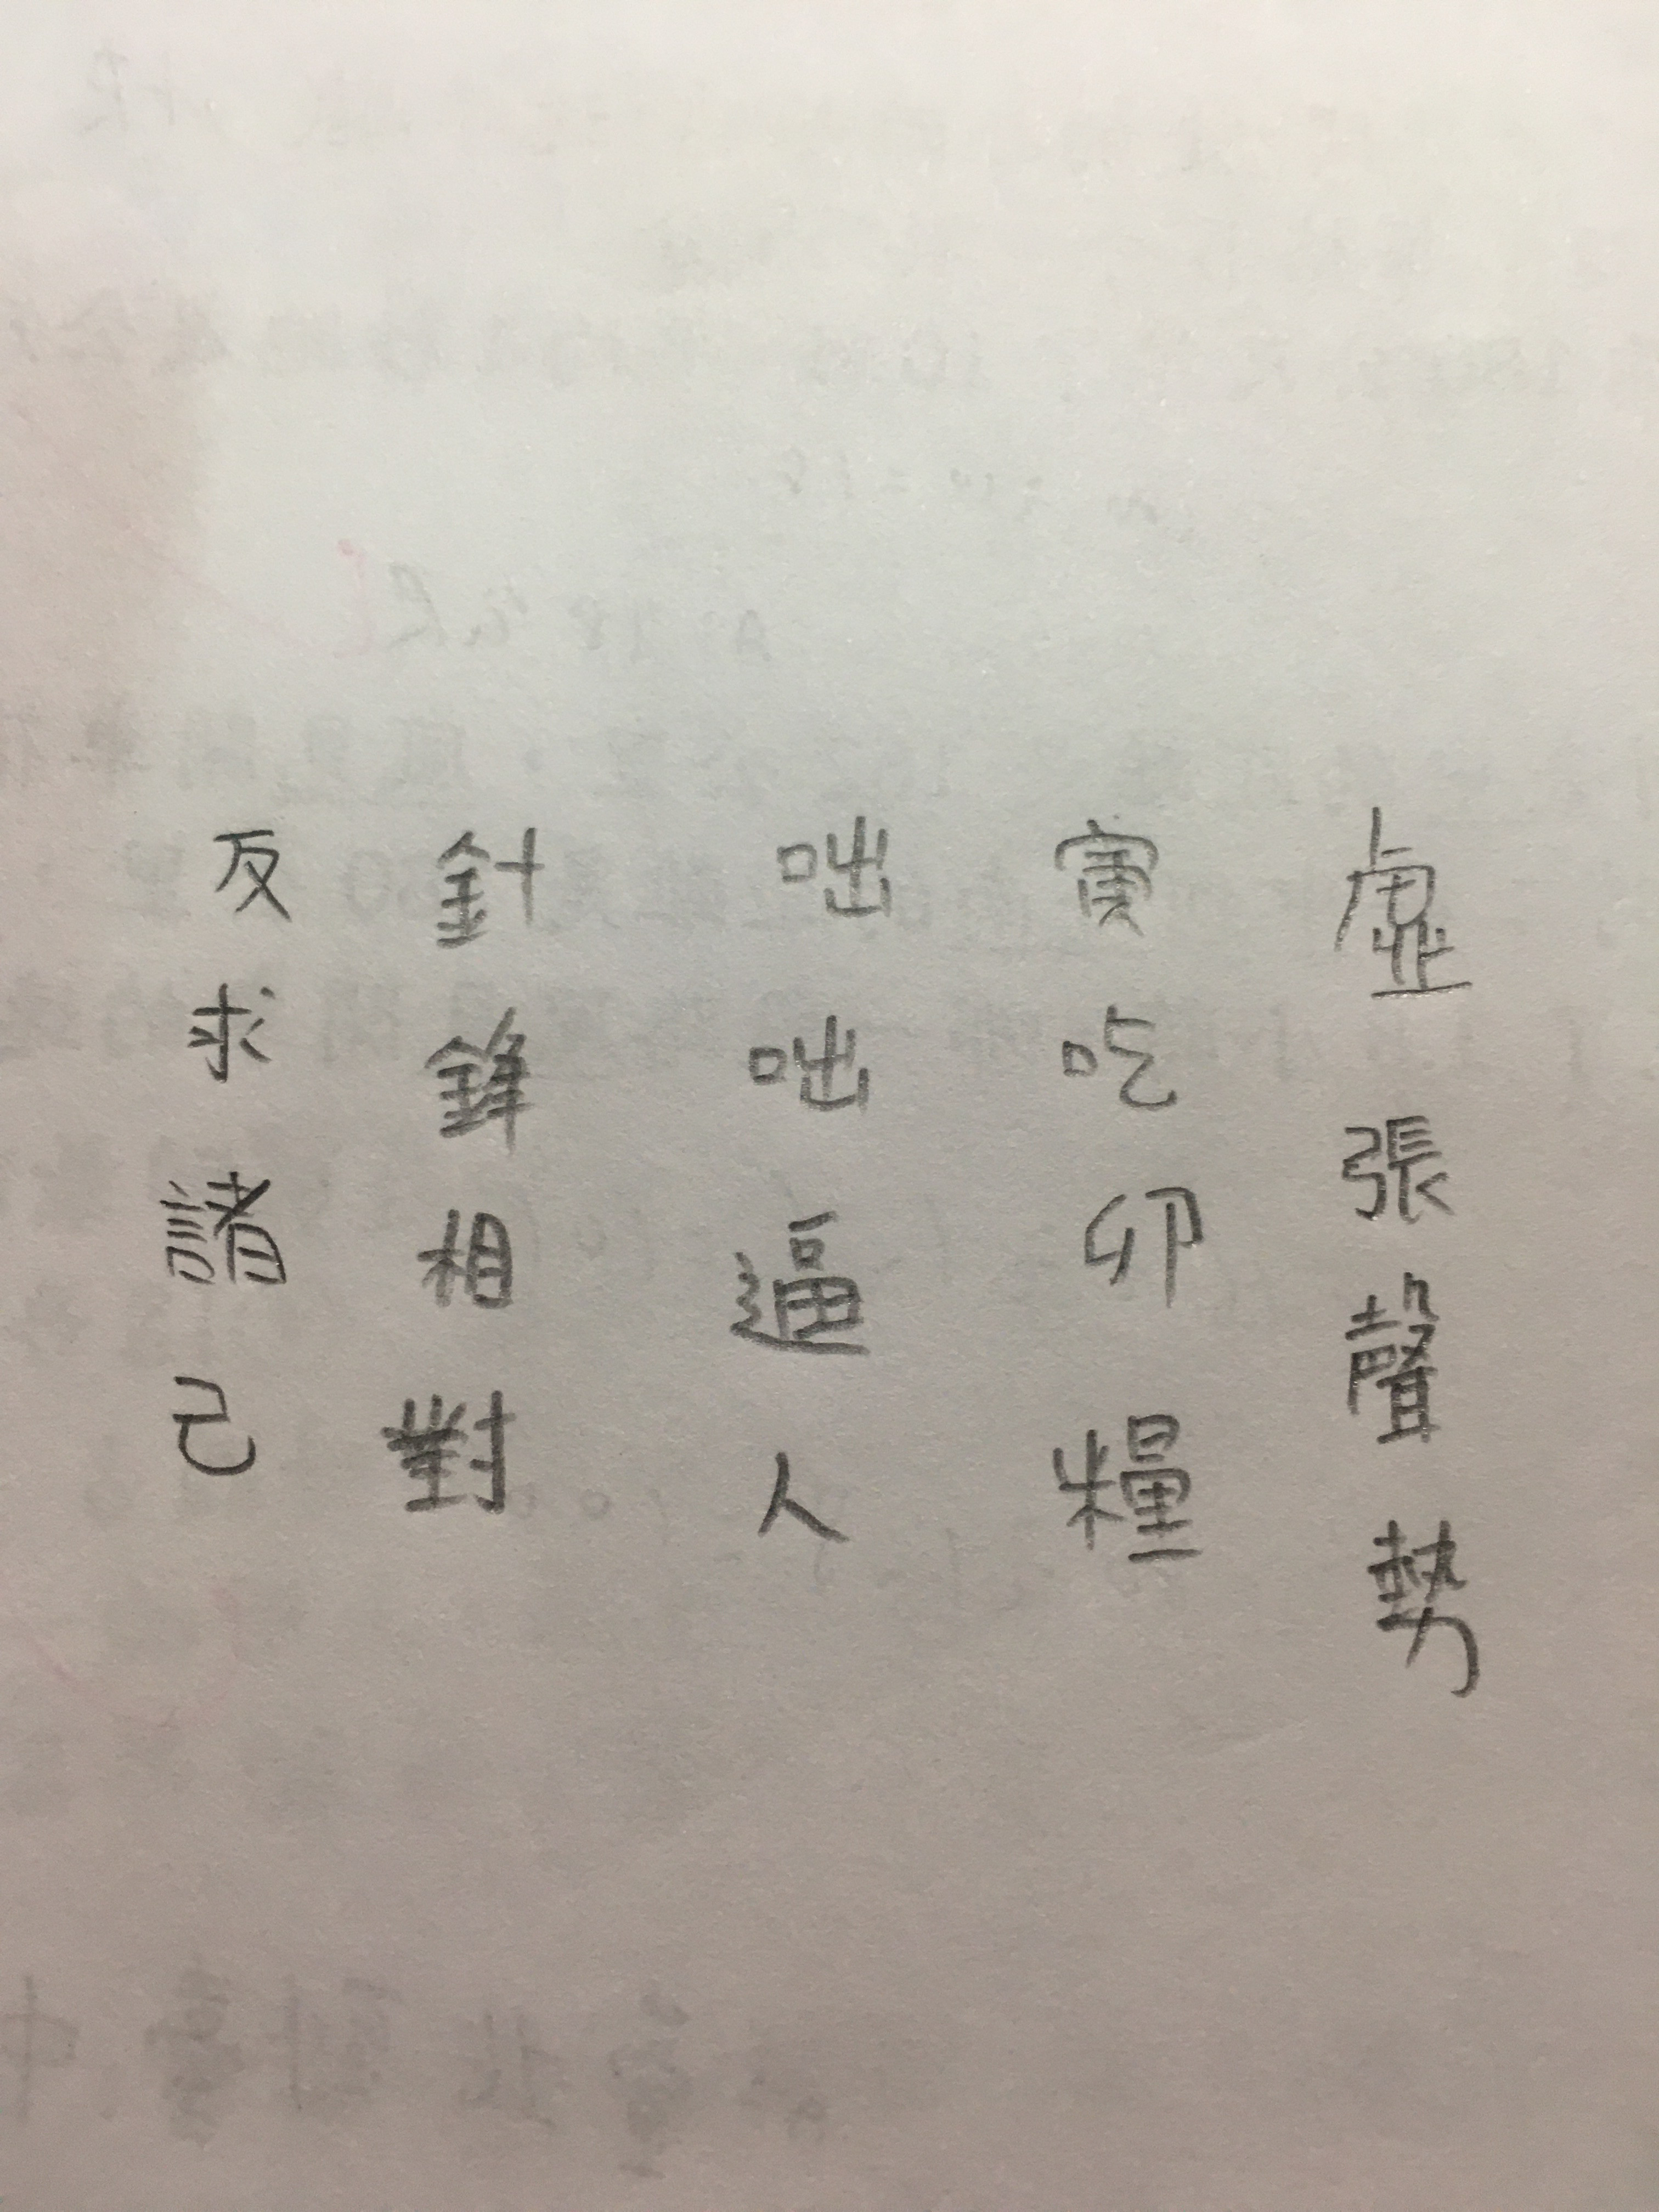 虛張聲勢
寅吃卯糧
咄咄逼人
針鋒相對
反求諸己